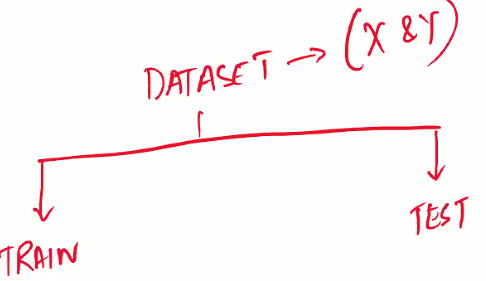 DATASET → (X & Y)
TRAIN
TEST